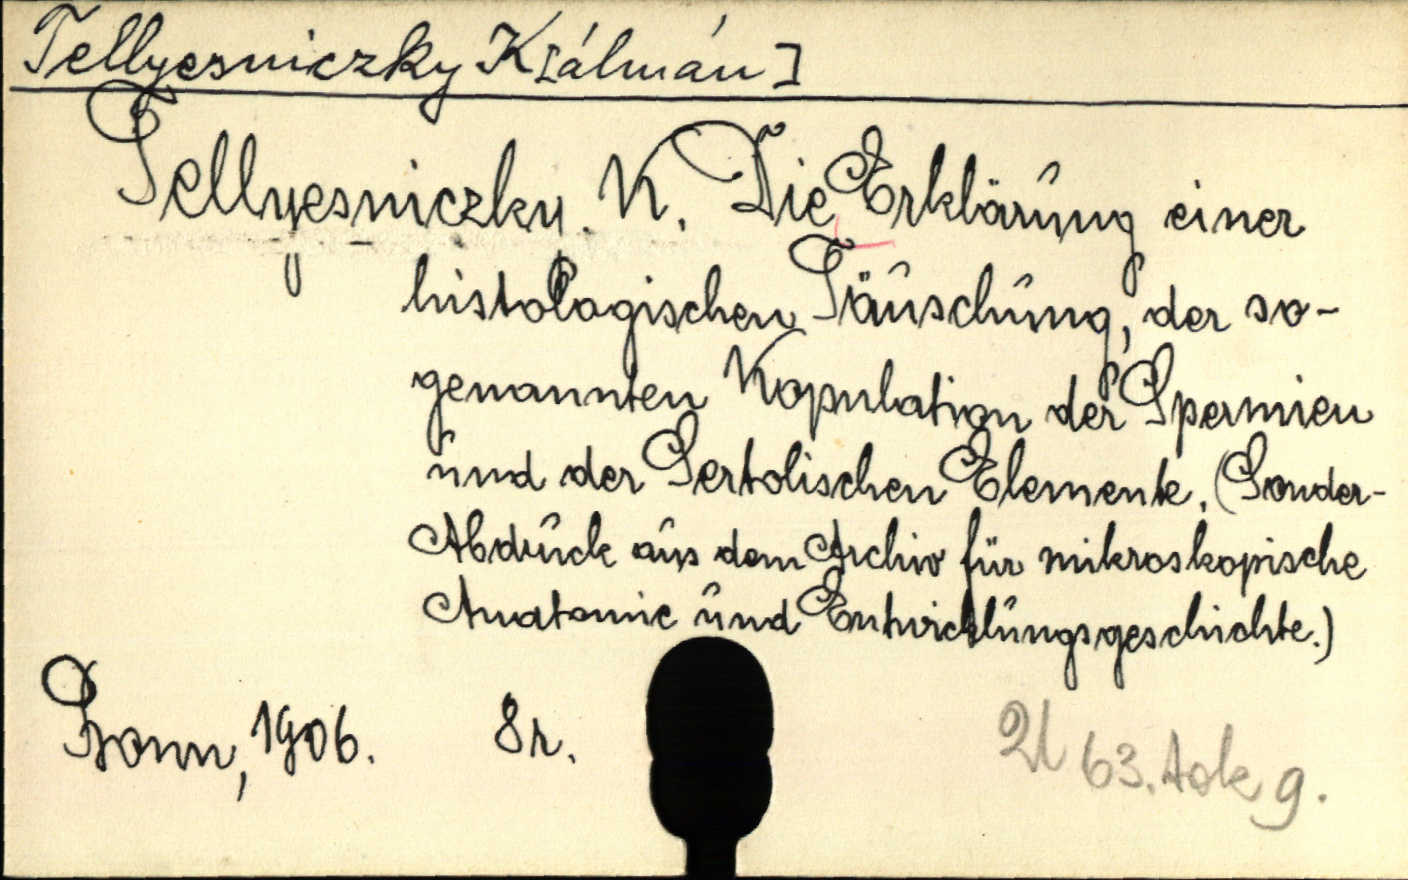 Tellyesniczky K[álmán]
Tellyesniczky. K. Die Erklärung einer
histologischen Täuschung, der so-
genannten Kopulation der Spermien
und der Sertolischen Elemente. (Sonder-
Abdruck aus dem Archiv für mikroskopische
Anatomie und Entwicklungsgeschichte.)
Bonn, 1906. 8r.
63. tok 9.